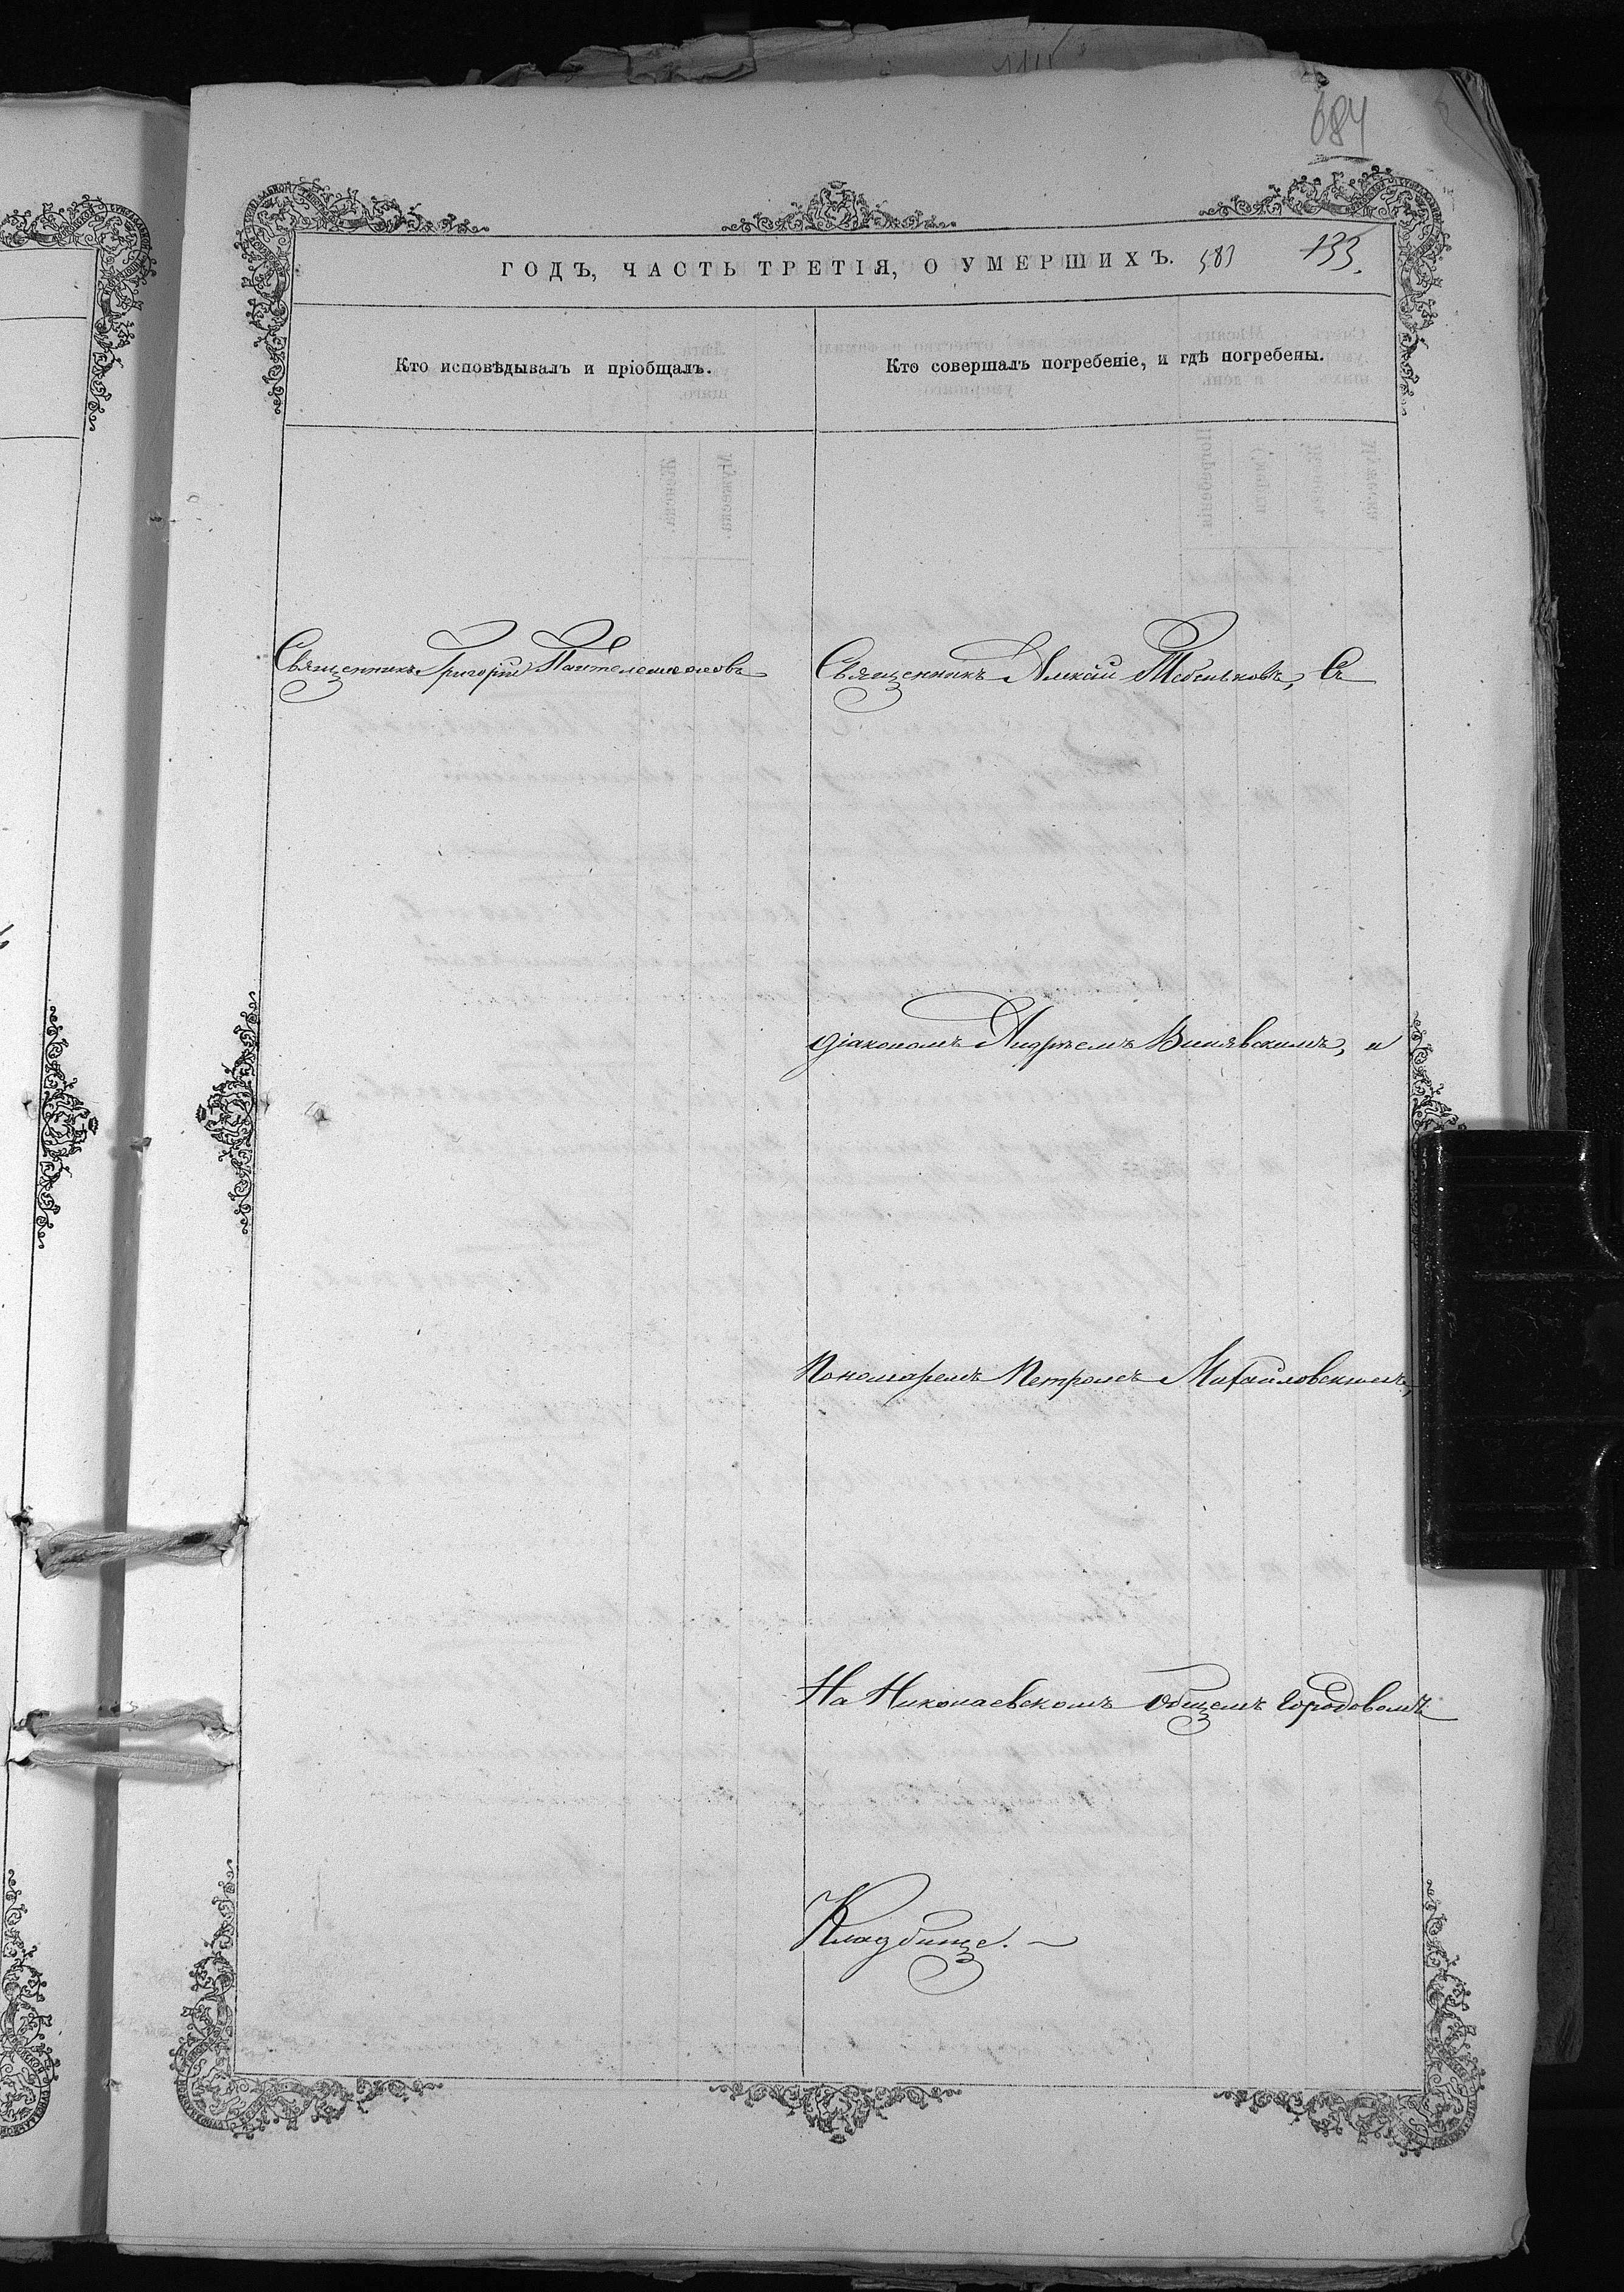 684
ГОДЪ, ЧАСТЬ ТРЕТІЯ, О УМЕРШИХЪ. 583 133.
Кто исповѣдывалъ и пріобщалъ.
Кто совершалъ погребеніе, и гдѣ погребены.
Священникъ Григорій Пантелеимоновъ
Священникъ Алексій Тебеньковъ, Съ
діакономъ Андреемъ Винявскимъ, и
Пономаремъ Петромъ Михайловскимъ,
На Николаевскомъ Общемъ городовомъ
Кладбище.